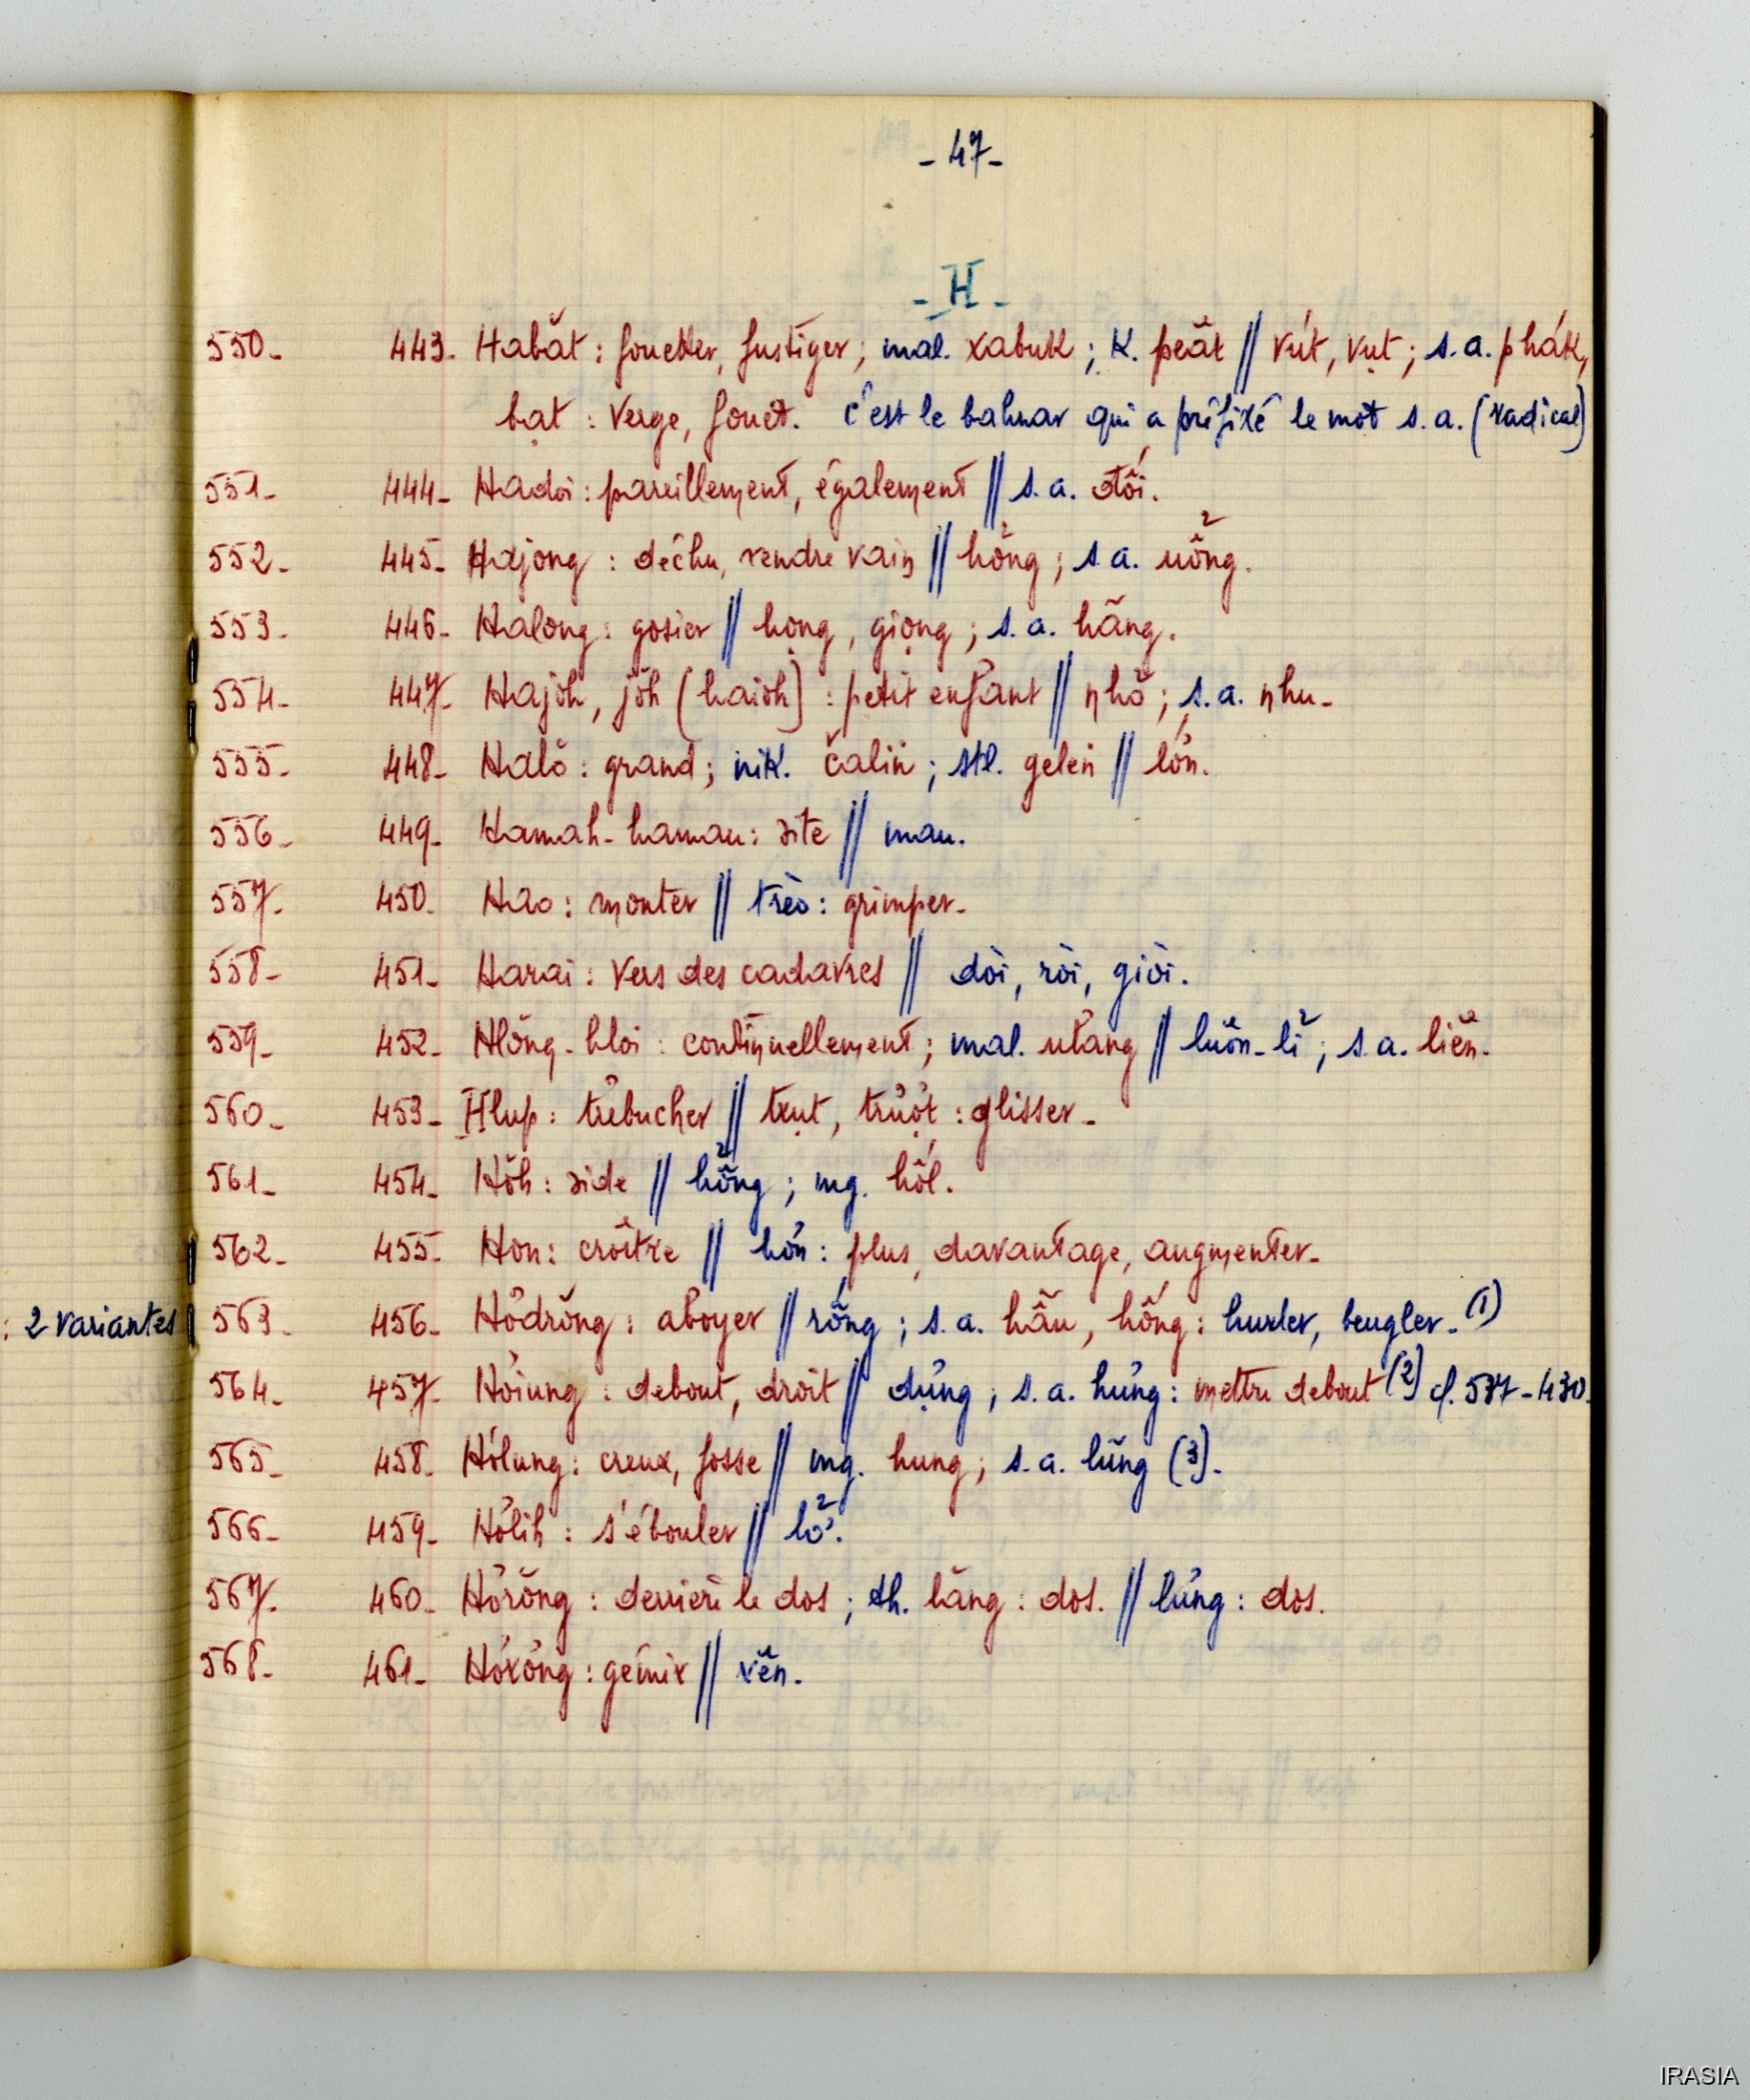 - 47 -
- H -
550- 443- Habăt : fouetter, fustiger ; mal. xabuk ; K. pĕăt // vút, vụt ; s.a. phák,
bạt : verge, fouet. c'est le bahnar qui a préfixé le mot s.a. (radical)
551- 444- Hadoi : pareillement, également // s.a. đối.
552- 445- Hajong : déchu, rendre vain // hỏng ; s.a. uổng.
553- 446- Halong : gosier // họng, giọng ; s.a. hãng.
554- 447- Hajŏh, jŏh (haioh) : petit enfant // nhỏ ; s.a. nhu-
555- 448- Halŏ : grand ; nik. čaliñ ; stl. geleñ // lớn.
556- 449- Hamah-haman : vite // mau.
557- 450- Hao : monter // trèo : grimper-
558- 451- Harai : vers des cadavres // dòi, ròi, giòi.
559- 452- Hlŏng-hloi : continuellement ; mal. ulang // luôn-li ; s.a. liên.
560- 453- Hlup : trébucher // trụt, trượt : glisser-
561- 454- Hŏh : vide // hổng ; mg. hốl.
562- 455- Hon : croître // hơn : plus, davantage, augmenter-
: 2 variantes 563- 456- Hơdrŏng : aboyer // rống ; s.a. hẩu, hống : hurler, beugler- (1)
564- 457- Hơiung : debout, droit // dựng ; s.a. hưng : mettre debout (2) cf. 537-430.
565- 458- Hơlung : creux, fosse // mg. hung ; s.a. lŭng (3).
566- 459- Hơlih : s'ébouler // lở.
567- 460- Hơrŏng : derrière le dos ; th. lăng : dos. // lưng : dos.
568- 461- Hơxơng : gémir // rên.
IRASIA